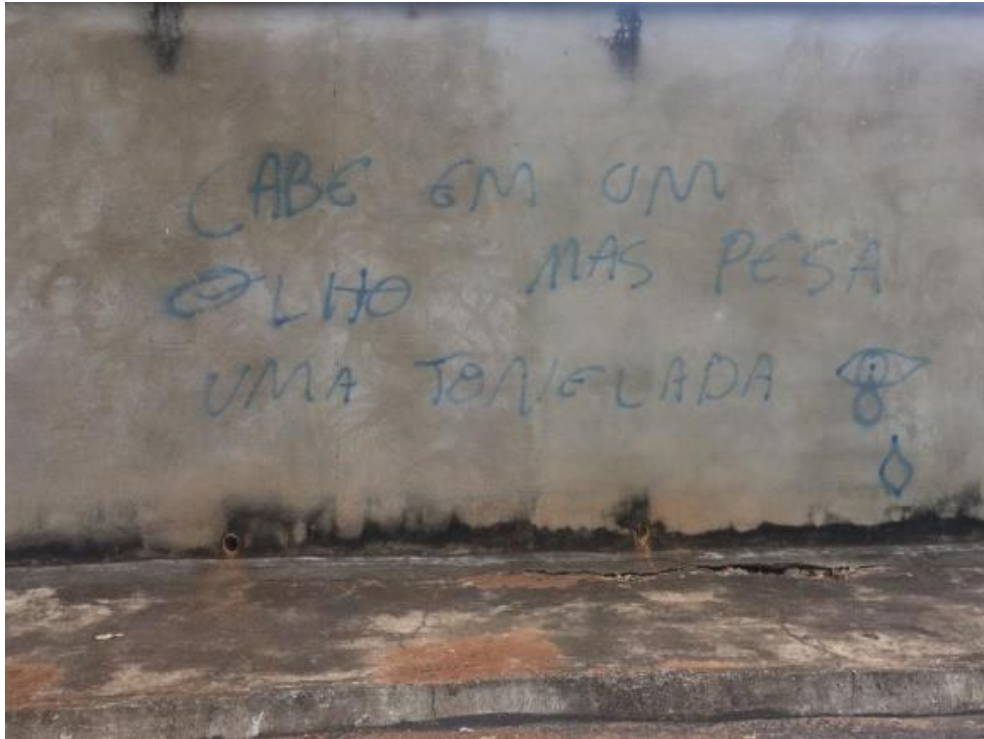 CABE EM UM
OLHO MAS PESA
UMA TONELADA